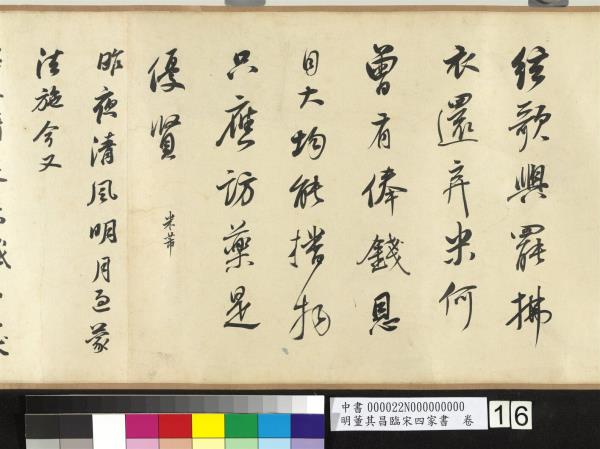 絃歌興罷拂
衣還弃米何
曾有俸錢恩
自大均能播物
只應訪藥是
優賢
米芾
昨夜清風明月已蒙
法施今又
中書 000022N000000000
明董其昌臨宋四家書 卷
16